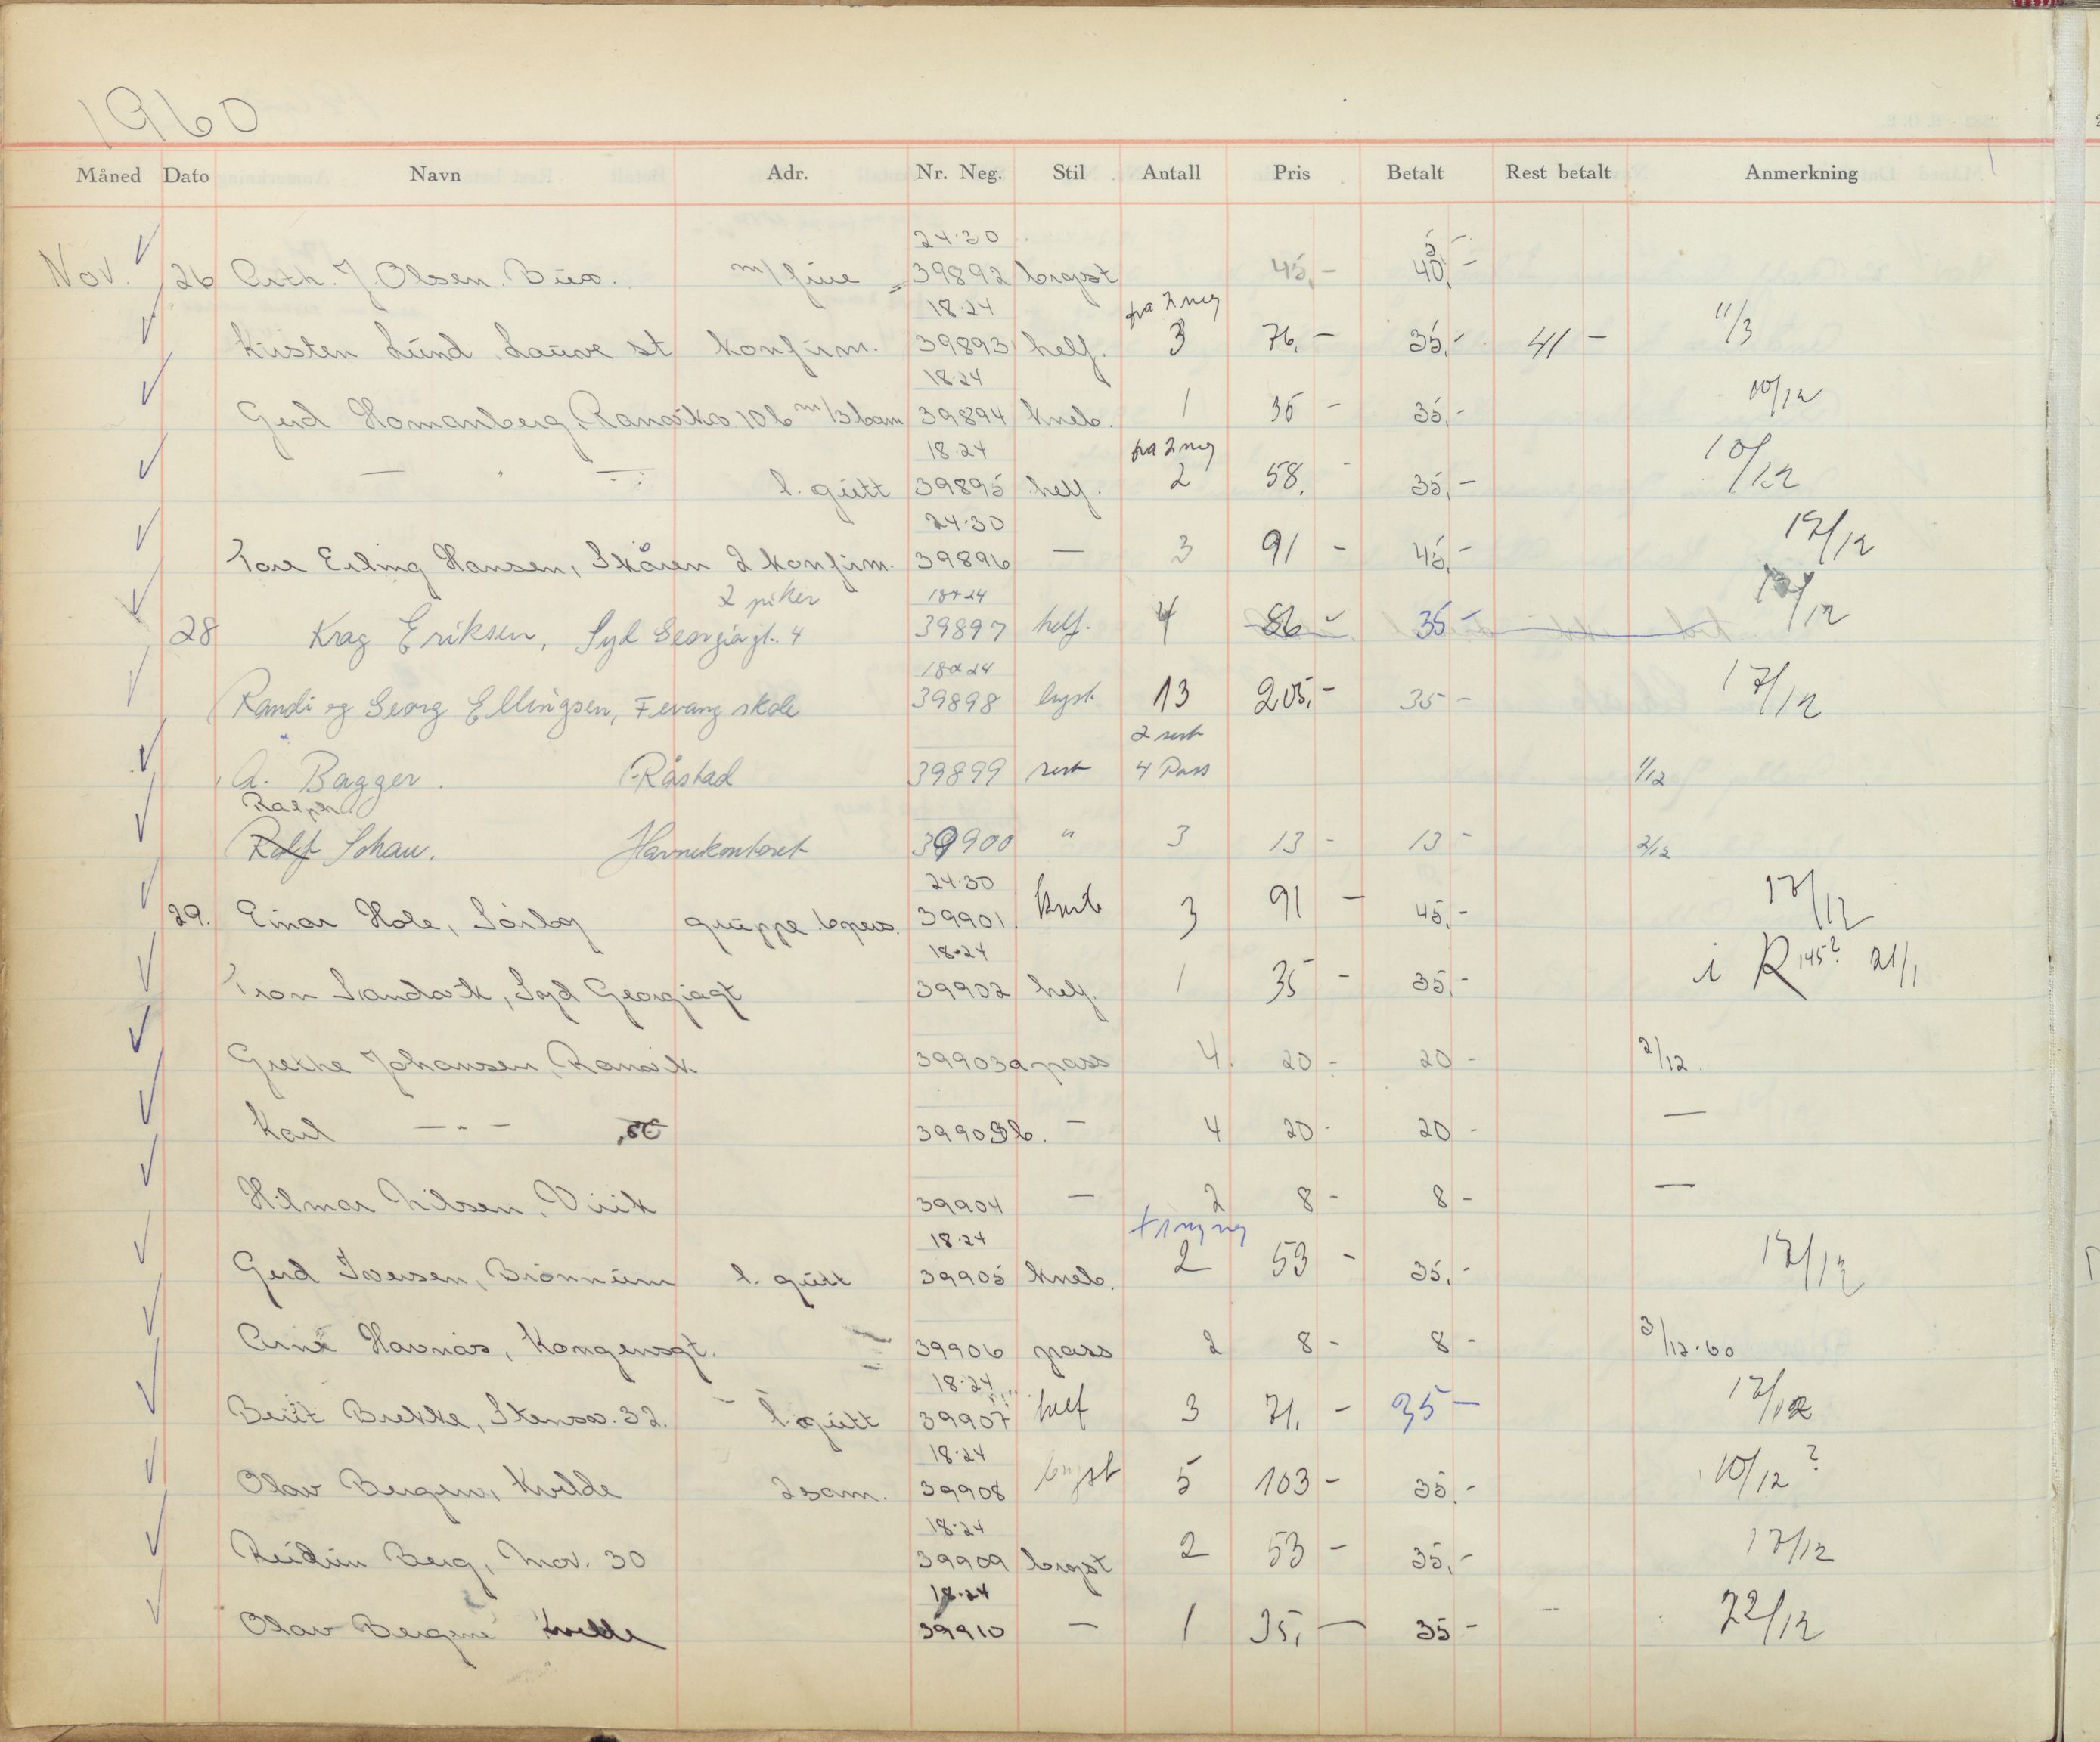 1960
Måned Dato Navn Adr. Nr. Neg. Stil Antall Pris Betalt Rest betalt Anmerkning
24.30 5 -
Nov. 26 Arth. J. Olsen. m/frue 39892 bryst 45,- 40,-
18.24 fra 2 neg
Kirsten Lund Lauve st konfirm. 39893 helf. 3 76,- 35,- 41 - 11/3
18.24
Gerd Homanberg, Ranvikv 10b m/3 barn 39894 kneb. 1 35 - 35,- 10/12
18.24 fra 2 neg
— " — l. gutt 39895 helf. 2 58,- 35,- 10/12
24.30
Tore Erling Hansen, Skåren 2 konfirm. 39896 — 3 91 - 45,- 17/12
2 piker 18x24
28 Krag Eriksen, Syd Georgiagt. 4 39897 helf. 4 86 - 35 - /12
18x24
Randi og Georg Ellingsen, Fevang skole 39898 bryst 13 205,- 35 - 17/12
2 sort
A. Bagger. Råstad 39899 sort 4 Pass 1/12
Ralph
Rolf Schau. Havnekontoret 39900 " 3 13 - 13 - 2/12
24.30
29. Einar Hole, Sörby gruppe 6 pers. 39901. kneb 3 91 - 45,- 17/12
18.24
Tron Sandvik, Syd Georgiagt 39902 helf. 1 35 - 35,- i R 145? 21/1
Grethe Johansen, Ranvik 39903a pass 4. 20 - 20 - 2/12.
Karl — " — 39903b. - 4 20 - 20 - —
Hilmar Nilsen, Virik 39904 — 2 8 - 8 - —
18.24
Gerd Iversen, Brönnum l. gutt 39905 kneb. 2 53 - 35,- 17/12
Arne Havnås, Kongensgt. 39906 pass 2 8 - 8 - 3/12.60
18.24
Berit Brekke, Stensv. 32. l. gutt 39907 helf 3 71,- 35 - 17/12
18.24
Olav Bergene, Kvelde 2 sam. 39908 bryst 5 103 - 35,- 10/12 ?
18.24
Reidun Berg, Mov. 30 39909 bryst 2 53 - 35,- 17/12
18.24
Olav Bergene Kvelde 39910 — 1 35,- 35 - 22/12